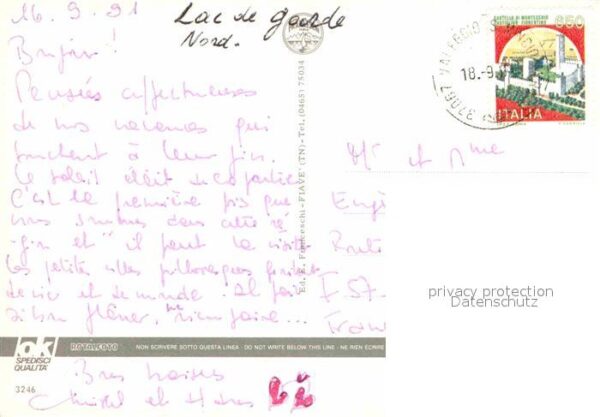 16.9.91
Lac de garde
Nord.
Bonjour!
Pensées affectueuses
de nos vacances qui
touchent à leur fin.
Le soleil était de la partie
C'est la première fois que
nous sommes dans cette ré
-gion et il faut la visiter
Les petites villes pittoresques
de vie et de monde. Il fait
si bon flâner, ne rien faire...
Bons baisers
Mr et Mme
Route
F 57
Ed. E. Franceschi - FIAVÈ (TN) - Tel. (0465) 75034
CASTELLO DI MONTECCHIO
CASTIGLION FIORENTINO
650
ITALIA
37067 VALEGGIO
18.-9.
privacy protection
Datenschutz
ok
SPEDISCI
QUALITÀ
ROTALFOTO
NON SCRIVERE SOTTO QUESTA LINEA - DO NOT WRITE BELOW THIS LINE - NE RIEN ÉCRIRE
3246